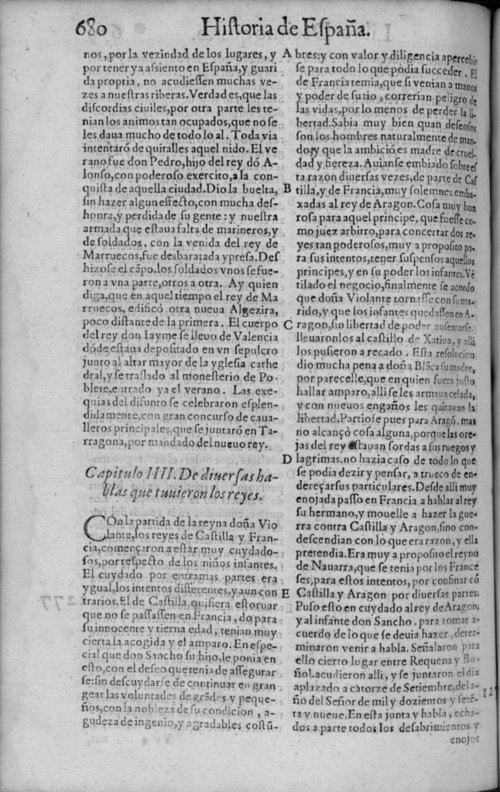 680
Historia de España.
nos, por la vezindad de los lugares, y
por tener ya assiento en España, y guari
da propria, no acudiessen muchas ve-
zes a nuestras riberas. Verdad es, que las
discordias ciuiles, por otra parte les te-
nian los animos tan ocupados, que no se
les daua mucho de todo lo al. Toda via
intentarõ de quitalles aquel nido. El ve
rano fue don Pedro, hijo del rey dõ A-
lonso, con poderoso exercito, a la con-
quista de aquella ciudad. Dio la buelta,
sin hazer algun effecto, con mucha des-
honra, y perdida de su gente: y nuestra
armada que estaua falta de marineros, y
de soldados, con la venida del rey de
Marruecos, fue desbaratada y presa. Des
hizose el cãpo. los soldados vnos se fue-
ron a vna parte, otros a otra. Ay quien
diga, que en aquel tiempo el rey de Ma
rruecos, edificò otra nueua Algezira,
poco distante de la primera. El cuerpo
del rey don Iayme se lleuo de Valencia
dõde estaua depositado en vn sepulcro
junto al altar mayor de la yglesia cathe
dral, y se traslado al monesterio de Po-
blete, entrado ya el verano. Las exe-
quias del difunto se celebraron esplen-
didamente, con gran concurso de caua-
lleros principales, que se juntarõ en Ta-
rragona, por mandado del nueuo rey.
Capitulo IIII. De diuersas ha-
blas que tuuieron los reyes.
COn la partida de la reyna doña Vio
lante, los reyes de Castilla y Fran-
cia, començaron a estar muy cuydado-
sos, por respecto de los niños infantes.
El cuydado por entramas partes era
ygual, los intentos differentes, y aun con
trarios. El de Castilla quisiera estoruar
que no se passassen en Francia, do para
su innocente y tierna edad, tenian muy
cierta la acogida y el amparo. En espe-
cial que don Sancho su hijo, le ponia en
esto, con el desseo que tenia de assegurar
se: sin descuydarse de continuar en gran
gear las voluntades de grãdes y peque-
ños, con la nobleza de su condicion, a-
gudeza de ingenio, y agradables costũ-
A
B
C
D
E
bres: y con valor y diligencia apercebir
se para todo lo que podia succeder. El
de Francia temia, que si venian a manos
y poder de su tio, correrian peligro de
las vidas, por lo menos de perder la li-
bertad. Sabia muy bien quan desseosos
son los hombres naturalmente de man-
do, y que la ambiciõ es madre de cruel-
dad y fiereza. Auianse embiado sobre es
ta razon diuersas vezes, de parte de Cas
tilla, y de Francia, muy solemnes emba-
xadas al rey de Aragon. Cosa muy hon
rosa para aquel principe, que fuesse co-
mo juez arbitro, para concertar dos re-
yes tan poderosos, muy a proposito pa
ra sus intentos, tener suspensos aquellos
principes, y en su poder los infantes. Vẽ
tilado el negocio, finalmente se acordo
que doña Violante tornasse con su ma-
rido, y que los infantes quedassen en A-
ragon, sin libertad de poder ausentarse.
lleuaronlos al castillo de Xatiua, y alli
los pusieron a recado. Esta resolucion
dio mucha pena a doña Blãca su madre,
por parecelle, que en quien fuera justo
hallar amparo, alli se les armaua celada,
y con nueuos engaños les quitauan la
libertad. Partiose pues para Aragõ, mas
no alcançò cosa alguna, porque las ore-
jas del rey estauan sordas a sus ruegos y
lagrimas. no hazia caso de todo lo que
se podia dezir y pensar, a trueco de en-
dereçar sus particulares. Desde alli muy
enojada passo en Francia, a hablar al rey
su hermano, y mouelle a hazer la guer-
ra contra Castilla y Aragon, sino con-
descendian con lo que era razon, y ella
pretendia. Era muy a proposito el reyno
de Nauarra, que se tenia por los France
ses, para estos intentos, por confinar cõ
Castilla y Aragon por diuersas partes.
Puso esto en cuydado al rey de Aragon,
y al infante don Sancho. para tomar a-
cuerdo de lo que se deuia hazer, deter-
minaron venir a habla. Señalaron para
ello cierto lugar entre Requena y Bu-
ñol. acudieron alli, y se juntaron el dia
aplazado a catorze de Setiembre, del a-
ño del Señor de mil y dozientos y setẽ-
ta y nueue. En esta junta y habla, echa-
dos a parte todos los desabrimientos y
enojos